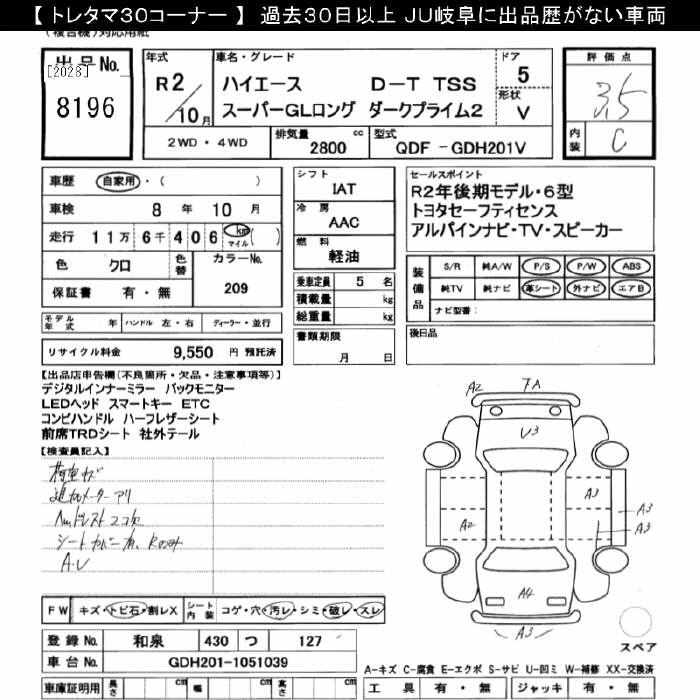 【 トレタマ30コーナー 】 過去30日以上 JU岐阜に出品歴がない車両
(複合機)対応用紙
出品No.
[2028]
8196
年式
R2/10月
車名・グレード
ハイエース D-T TSS
スーパーGLロング ダークプライム2
ドア
5
形状
V
2WD・4WD
排気量
2800 cc
型式
QDF - GDH201V
評価点
3.5
内装
C
車歴 自家用・( )
車検 8年 10月
走行 11万 6千 406 km マイル ( )
色 クロ
色替
カラーNo.
209
保証書 有・無
シフト
IAT
冷房
AAC
燃料
軽油
乗車定員 5 名
積載量 kg
総重量 kg
書類期限
月 日
セールスポイント
R2年後期モデル・6型
トヨタセーフティセンス
アルパインナビ・TV・スピーカー
装備品
S/R 純A/W P/S P/W ABS
純TV 純ナビ 革シート 外ナビ エアB
ナビ型番:
後日品
モデル年式 年 ハンドル 左・右 ディーラー・並行
リサイクル料金 9,550 円 預託済
【出品店申告欄(不良箇所・欠品・注意事項等)】
デジタルインナーミラー バックモニター
LEDヘッド スマートキー ETC
コンビハンドル ハーフレザーシート
前席TRDシート 社外テール
【検査員記入】
荷室キズ
追加メーターアリ
ヘッドレスト2コ欠
シートカバー有、
A・V
A2
7A
V3
A3
A2
A3
A3
A4
A3
FW キズ・トビ石・割レX
シート内装 コゲ・穴・汚レ・シミ・破レ・スレ
登録No. 和泉 430 つ 127
車台No. GDH201-1051039
スペア
A-キズ C-腐食 E-エクボ S-サビ U-凹ミ W-補修 XX-交換済
車庫証明用 長さ cm 幅 cm 高さ cm
工具 有・無 ジャッキ 有・無